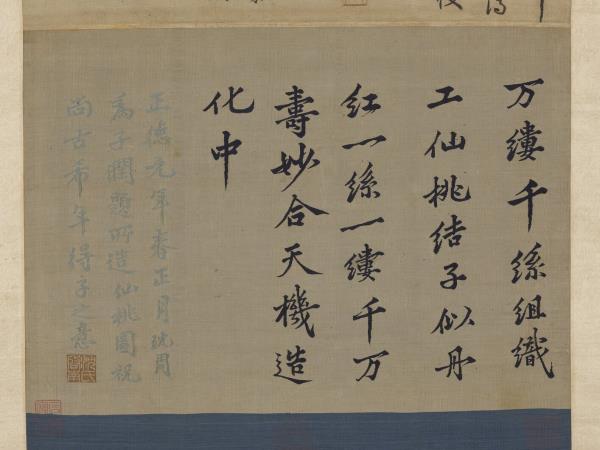 万縷千絲組織
工仙桃結子似丹
紅一絲一縷千万
壽妙合天機造
化中
正德元年春正月沈周
為子潤所造仙桃圖祝
尚古希年得子之意